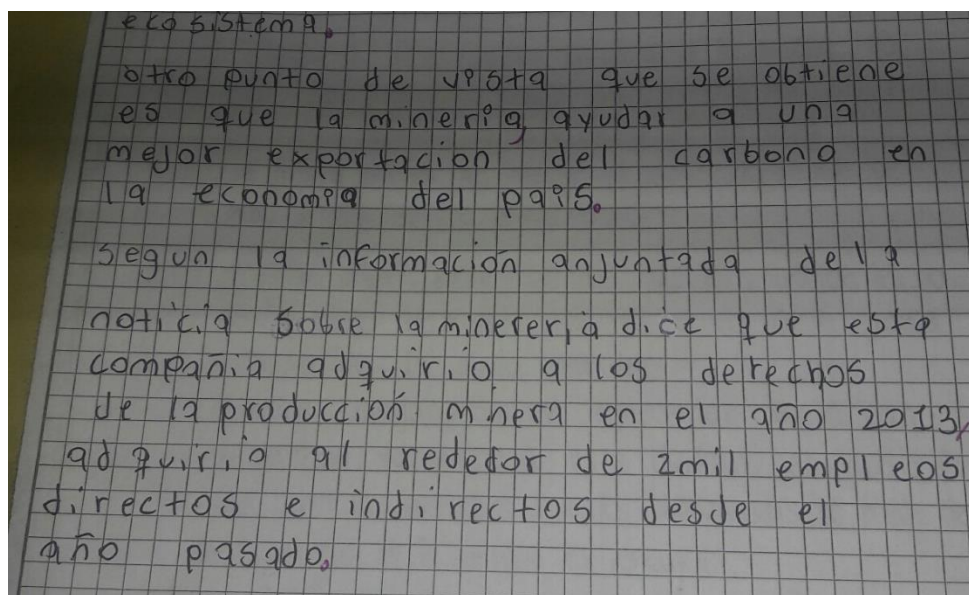 ecosistema.
otro punto de vista que se obtiene
es que la mineria ayudar a una
mejor exportacion del carbono en
la economia del pais.
segun la informacion anjuntada dela
noticia sobre la minereria dice que esta
compañia adquirio a los derechos
de la produccion minera en el año 2013,
adquirio al rededor de 2mil empleos
directos e indirectos desde el
año pasado.